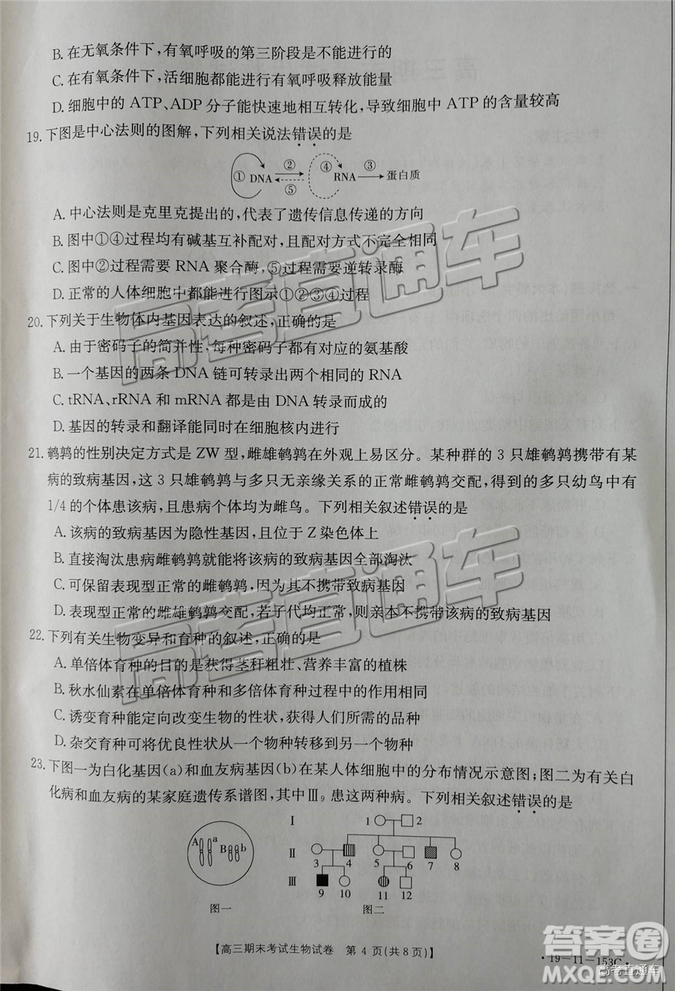 B. 在无氧条件下,有氧呼吸的第三阶段是不能进行的
C. 在有氧条件下,活细胞都能进行有氧呼吸释放能量
D. 细胞中的 ATP、ADP 分子能快速地相互转化,导致细胞中 ATP 的含量较高
19. 下图是中心法则的图解,下列相关说法错误的是
① DNA ② ⑤ ④ RNA ③ 蛋白质
A. 中心法则是克里克提出的,代表了遗传信息传递的方向
B. 图中①④过程均有碱基互补配对,且配对方式不完全相同
C. 图中②过程需要 RNA 聚合酶,⑤过程需要逆转录酶
D. 正常的人体细胞中都能进行图示①②③④过程
20. 下列关于生物体内基因表达的叙述,正确的是
A. 由于密码子的简并性,每种密码子都有对应的氨基酸
B. 一个基因的两条 DNA 链可转录出两个不同的 RNA
C. tRNA、rRNA 和 mRNA 都是 DNA 转录而来的
D. 基因的转录和翻译能同时在细胞核内进行
21. 鹌鹑的性别决定方式是 ZW 型,雌雄鹌鹑在外观上易区分。某种群的 3 只雄鹌鹑携带有某
病的致病基因,这 3 只雄鹌鹑与多只无亲缘关系的正常雌鹌鹑交配,得到的多只幼鸟中有
1/4 的个体患该病,且患病个体均为雌鸟。下列相关叙述错误的是
A. 该病的致病基因为隐性基因,且位于 Z 染色体上
B. 直接淘汰患病雌鹌鹑就能将该病的致病基因全部淘汰
C. 可保留表现型正常的雌鹌鹑,因为其不携带致病基因
D. 表现型正常的雌雄鹌鹑交配,若子代均正常,则亲本不携带该病的致病基因
22. 下列有关生物变异和育种的叙述,正确的是
A. 单倍体育种的目的是获得茎秆粗壮、营养丰富的植株
B. 秋水仙素在单倍体育种和多倍体育种过程中的作用相同
C. 诱变育种能定向改变生物的性状,获得人们所需的品种
D. 杂交育种可将优良性状从一个物种转移到另一个物种
23. 下图一为白化基因(a)和血友病基因(b)在某人体细胞中的分布情况示意图;图二为有关白
化病和血友病的某家庭遗传系谱图,其中Ⅲ9 患这两种病。下列相关叙述错误的是
A a B b
Ⅰ 1 2
Ⅱ 3 4 5 6 7 8
Ⅲ 9 10 11 12
图一 图二
【高三期末考试生物试卷 第 4 页(共 8 页)】
· 19-11-153C ·
高考直通车
高考直通车
高考直通车
MXQE.COM